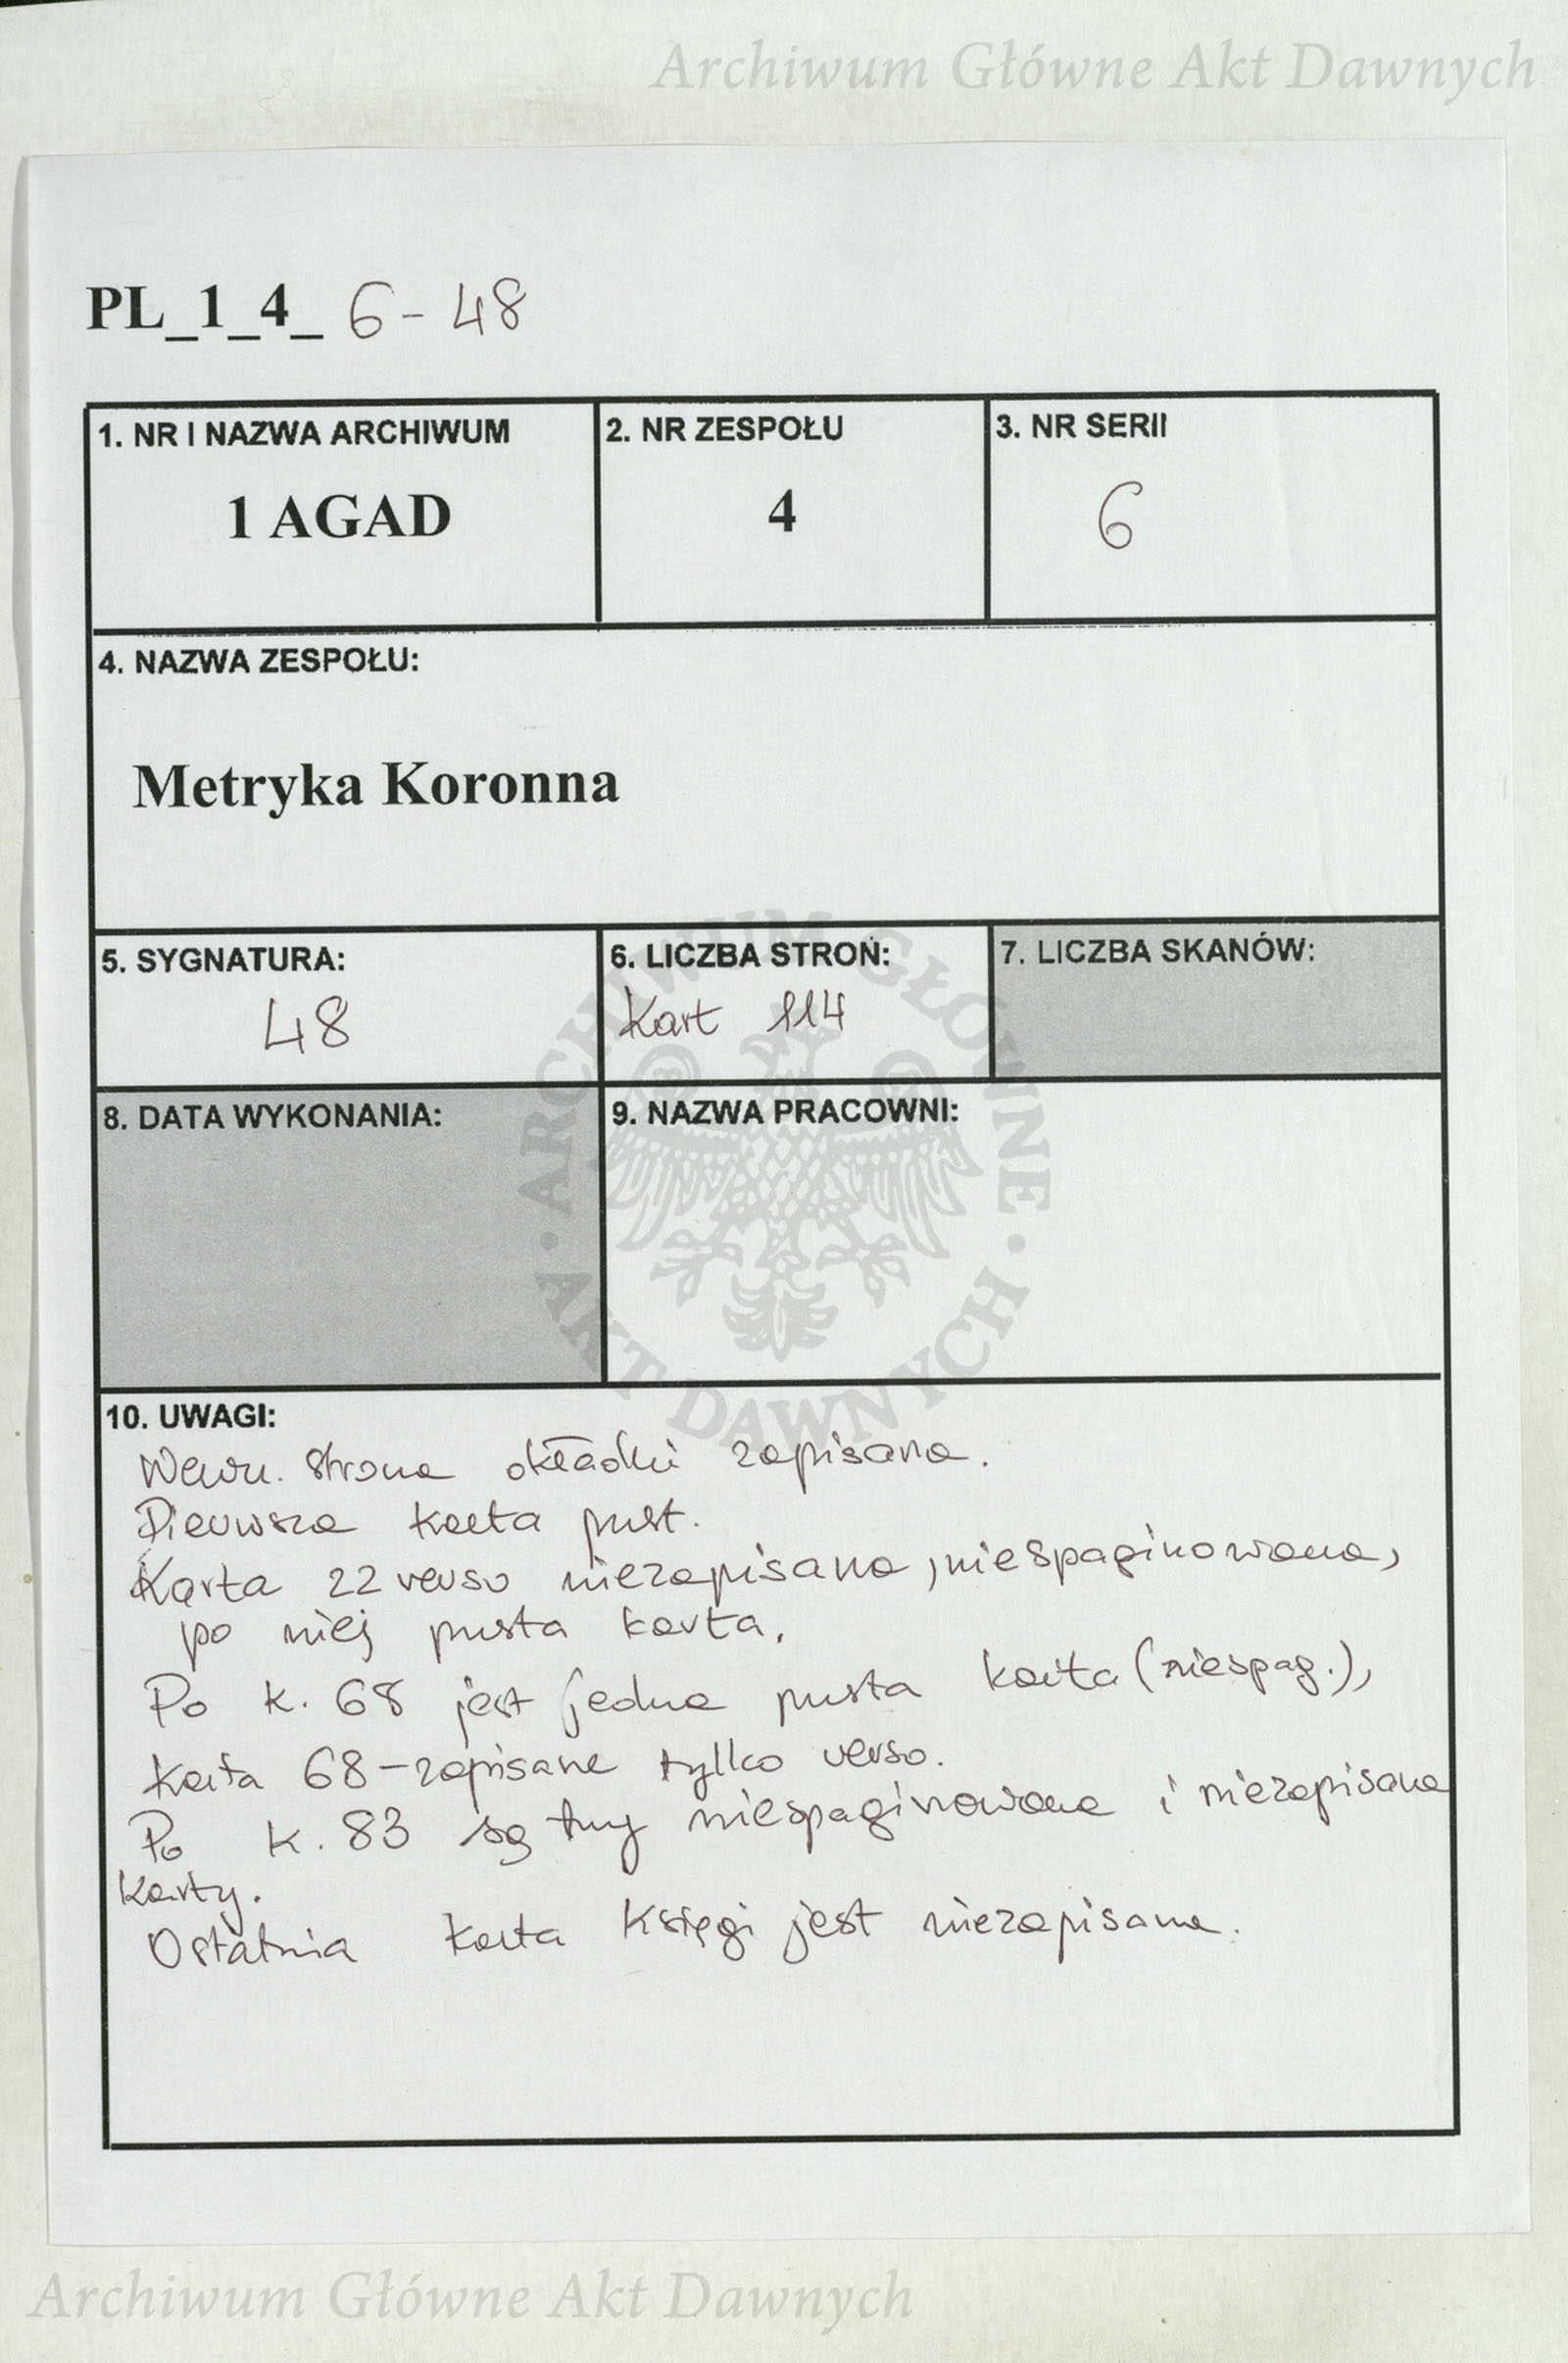 Archiwum Główne Akt Dawnych
PL_1_4_ 6-48
1. NR I NAZWA ARCHIWUM
1 AGAD
2. NR ZESPOŁU
4
3. NR SERII
6
4. NAZWA ZESPOŁU:
Metryka Koronna
5. SYGNATURA:
48
6. LICZBA STRON:
Kart 114
7. LICZBA SKANÓW:
8. DATA WYKONANIA:
9. NAZWA PRACOWNI:
ARCHIWUM GŁÓWNE · AKT DAWNYCH ·
10. UWAGI:
Wewn. strona okładki zapisana.
Pierwsza karta pust.
Karta 22 verso niezapisana, niespaginowana,
po niej pusta karta.
Po k. 68 jest jedna pusta karta (niespag.),
Karta 68 - zapisane tylko verso.
Po k. 83 są trzy niespaginowane i niezapisane
karty.
Ostatnia karta Księgi jest niezapisana.
Archiwum Główne Akt Dawnych